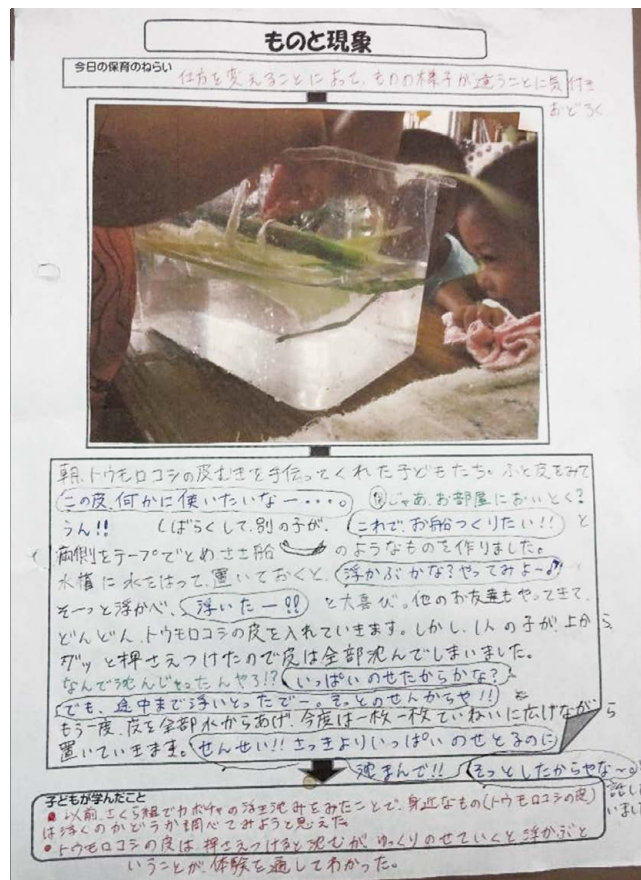 ものと現象
今日の保育のねらい
仕方を変えることによって、ものの様子が違うことに気付き
おどろく
朝、トウモロコシの皮むきを手伝ってくれた子どもたち。ふと皮をみて
この皮、何かに使いたいなー・・・・。 じゃあ、お部屋においとく?
うん!! しばらくして、別の子が、 これで、お船つくりたい!! と
両側をテープでとめささ船 のようなものを作りました。
水槽に水をはって、置いておくと、 浮かぶかな?やってみよ〜♪
そーっと浮かべ、 浮いたー!! と大喜び。他のお友達もやってきて、
どんどん、トウモロコシの皮を入れていきます。しかし、1人の子が、上から
グッと押さえつけたので皮は全部沈んでしまいました。
なんで沈んじゃったんやろ!? いっぱいのせたからかな?
でも、途中まで浮いとったでー。そっとのせんからや!! と
もう一度、皮を全部水からあげ、今度は一枚一枚ていねいに広げながら
置いていきます。 せんせい!! さっきよりいっぱいのせとるのに
沈まんで!! そっとしたからやな〜。
話し
いました
子どもが学んだこと
●以前、さくら組でカボチャの浮き沈みをみたことで、身近なもの(トウモロコシの皮)
は浮くのかどうか調べてみようと思えた。
●トウモロコシの皮は、押さえつけると沈むが、ゆっくりのせていくと浮かぶと
いうことが、体験を通してわかった。